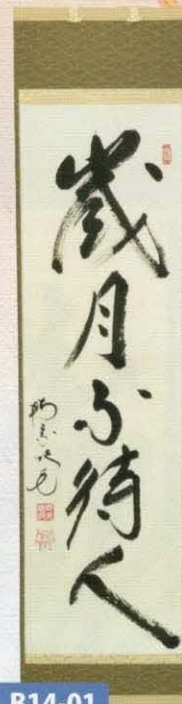 歳月不待人
B14-01